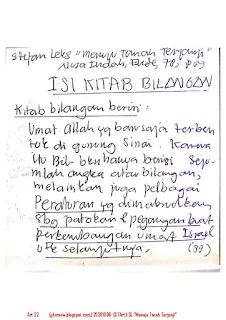 Stefan Leks "Menuju Tanah Terjanji"
Nusa Indah, Ende, 78, p 89
ISI KITAB BILANGAN
Kitab bilangan berisi:
Umat Allah yg baru saja terben
tuk di gunung Sinai. Karena
itu Bil- bkn hanya berisi seju-
mlah angka atau bilangan,
melainkan juga pelbagai
Peraturan yg dimaksudkan
sbg patokan & pegangan buat
perkembangan umat Israel
utk selanjutnya. (89)
Art 22 (jphrnoew.blogspot.com)